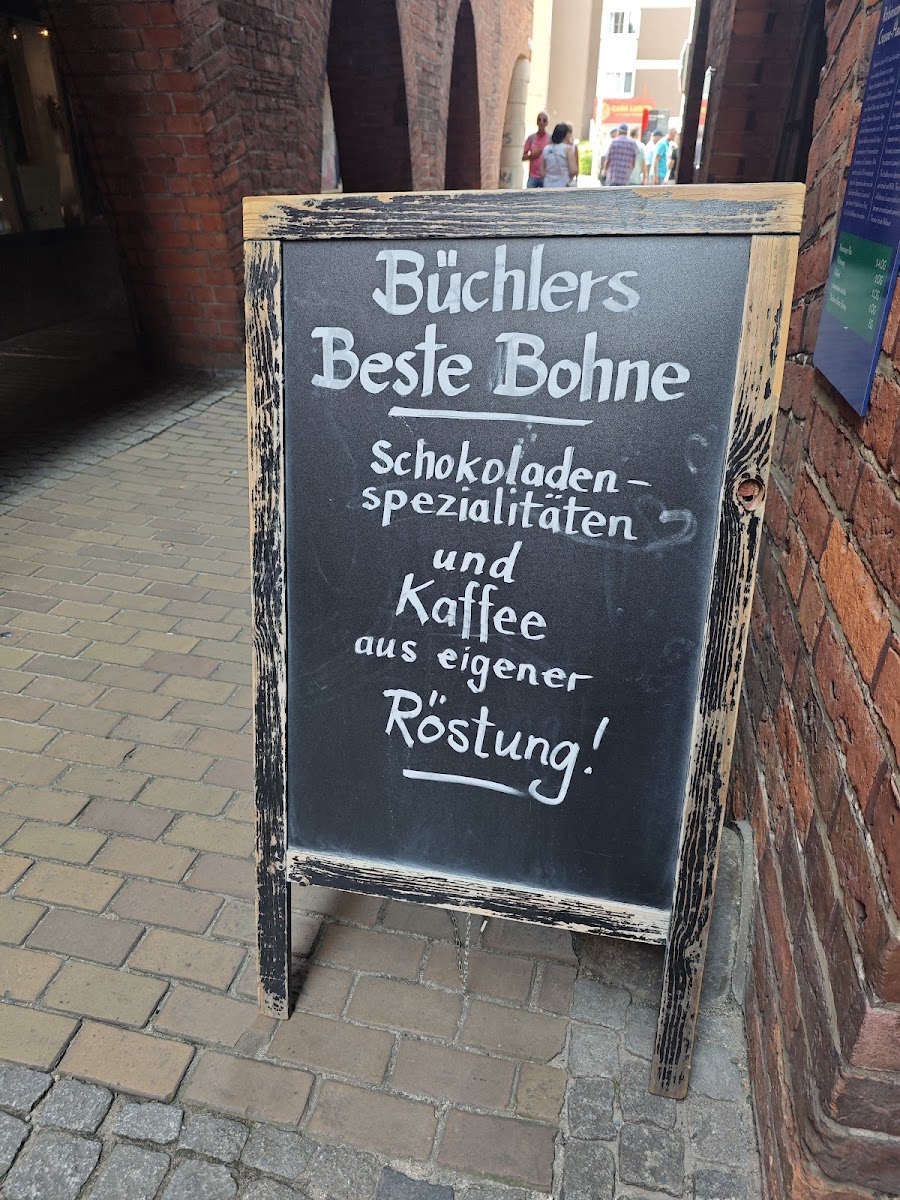 Büchlers
Beste Bohne
Schokoladen-
spezialitäten
und
Kaffee
aus eigener
Röstung!